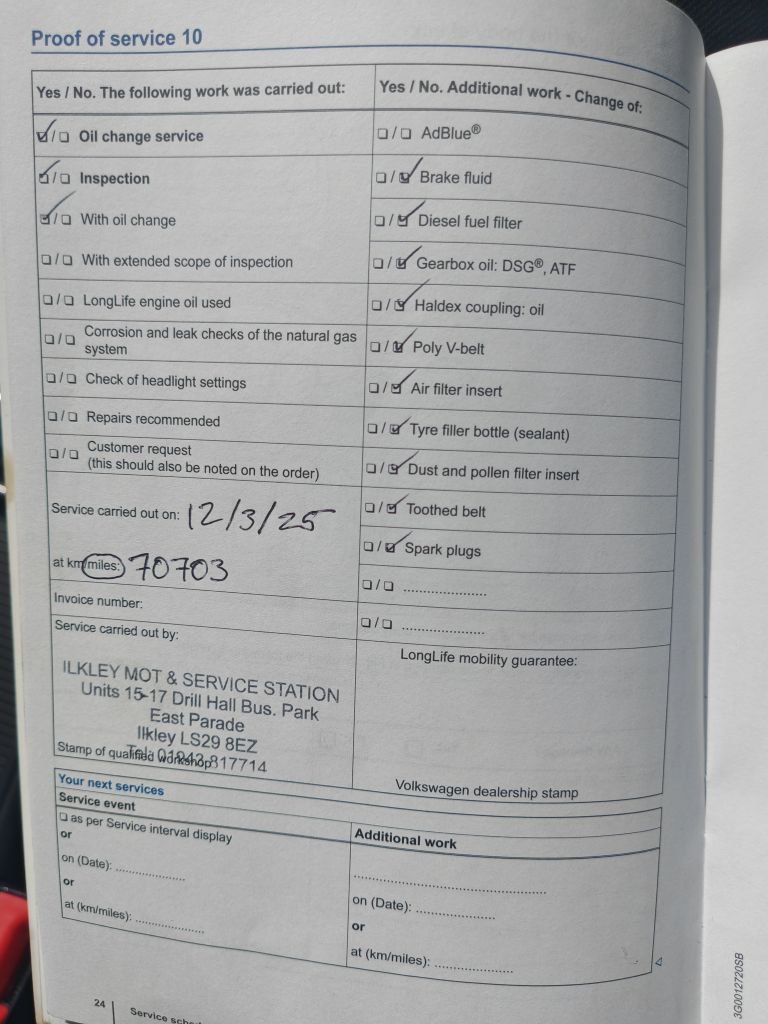 Proof of service 10
Yes / No. The following work was carried out:
Oil change service
Inspection
With oil change
With extended scope of inspection
LongLife engine oil used
Corrosion and leak checks of the natural gas
system
Check of headlight settings
Repairs recommended
Customer request
(this should also be noted on the order)
Service carried out on: 12/3/25
at km/miles: 70703
Invoice number:
Service carried out by:
ILKLEY MOT & SERVICE STATION
Units 15-17 Drill Hall Bus. Park
East Parade
Ilkley LS29 8EZ
Tel: 01943 817714
Stamp of qualified workshop
Yes / No. Additional work - Change of:
AdBlue®
Brake fluid
Diesel fuel filter
Gearbox oil: DSG®, ATF
Haldex coupling: oil
Poly V-belt
Air filter insert
Tyre filler bottle (sealant)
Dust and pollen filter insert
Toothed belt
Spark plugs
LongLife mobility guarantee:
Volkswagen dealership stamp
Your next services
Service event
as per Service interval display
or
on (Date):
or
at (km/miles):
Additional work
on (Date):
or
at (km/miles):
24
Service
3G0012720SB